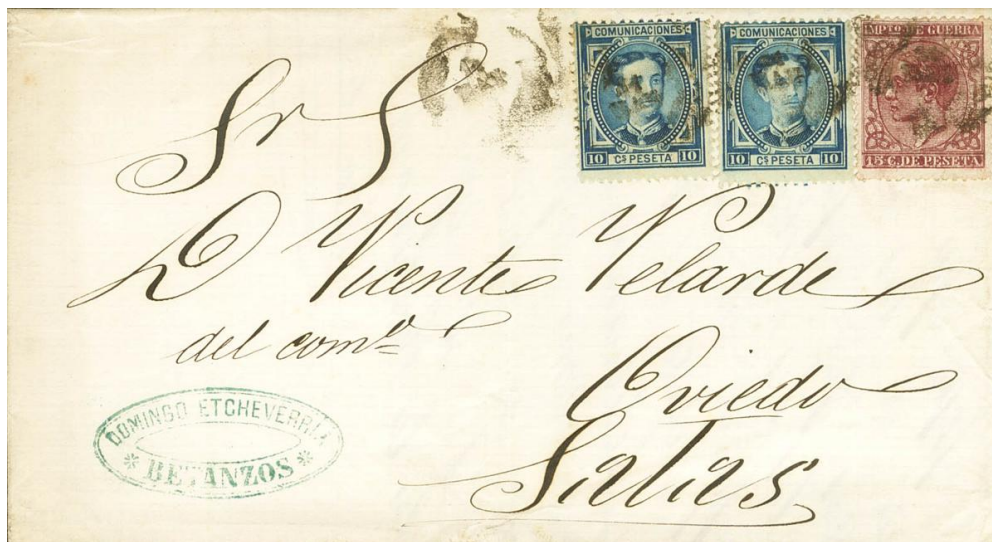 COMUNICACIONES
10 Cs PESETA 10
COMUNICACIONES
10 Cs PESETA 10
IMPTO DE GUERRA
15 C. DE PESETA
Sr
D Vicente Velarde
del como
Oviedo
Salas
DOMINGO ETCHEVERRIA
* BETANZOS *